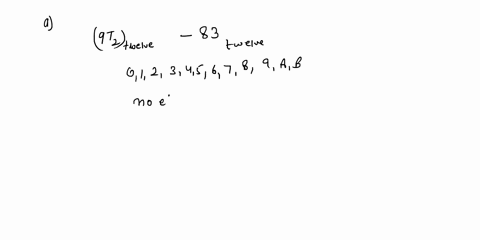 a) (9T2)twelve - 83twelve
0,1, 2, 3, 4,5, 6, 7, 8, 9, A, B
no e